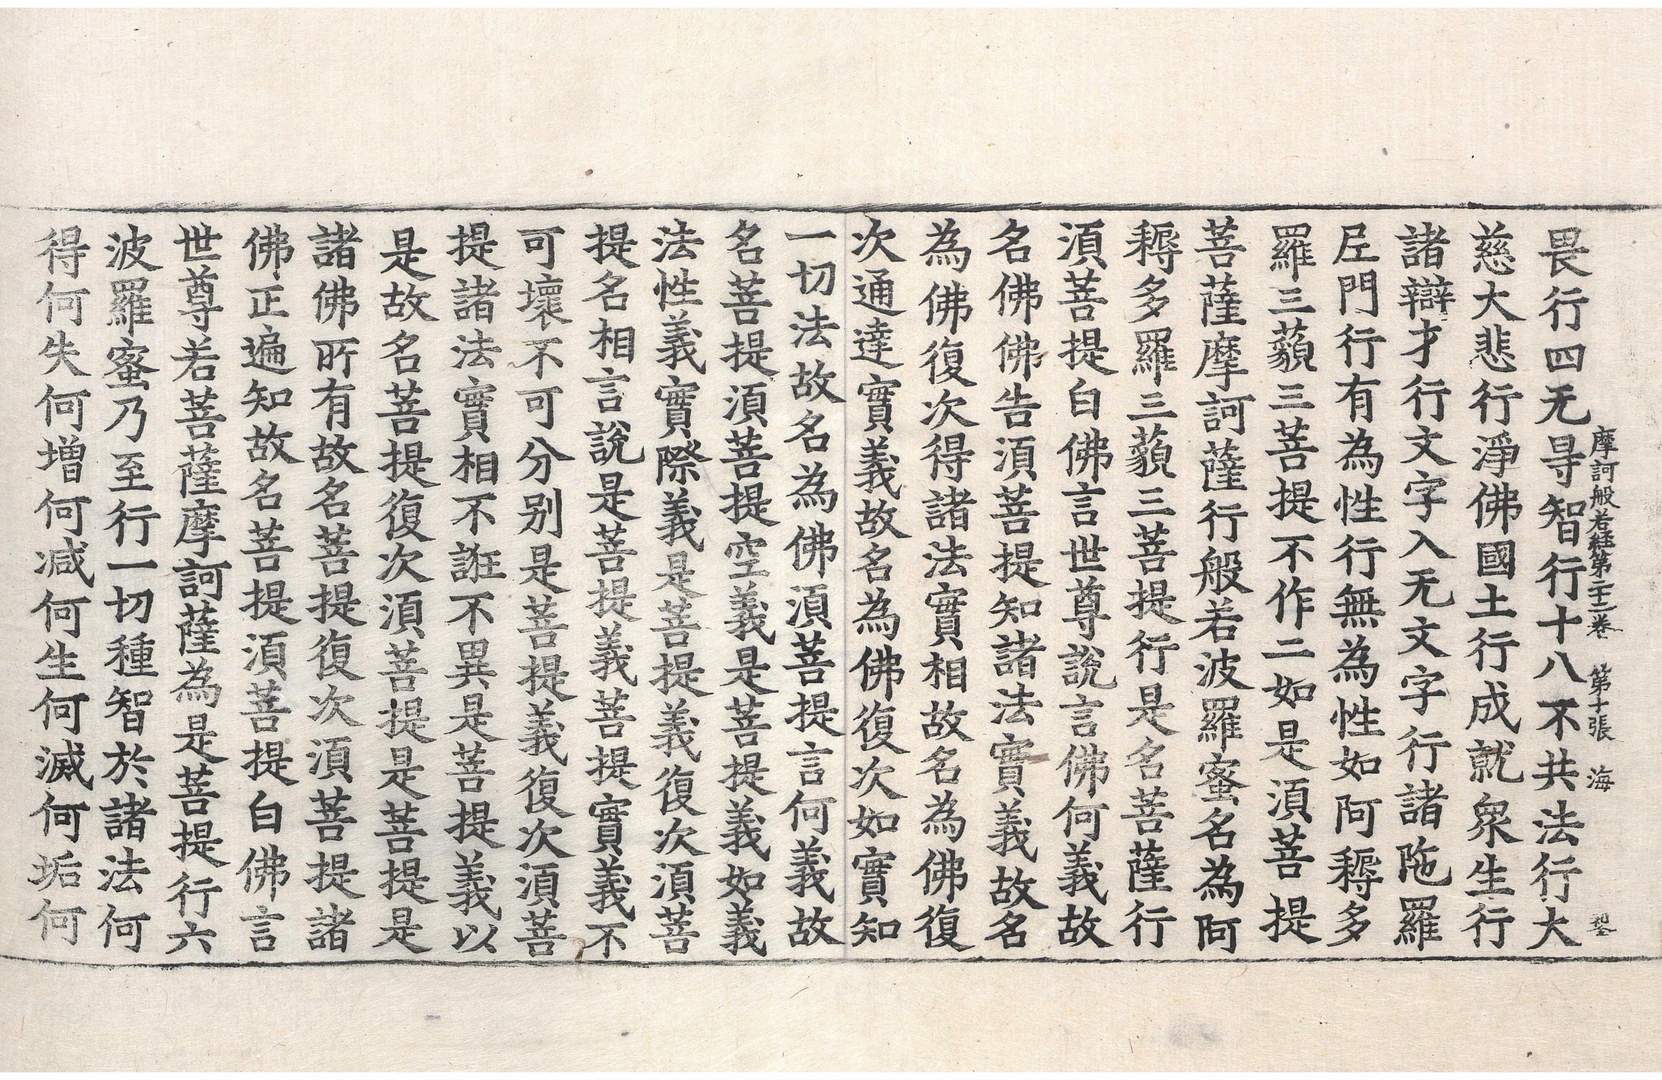 摩訶般若經第二十二卷　第十張　海
畏行四无㝵智行十八不共法行大
慈大悲行淨佛國土行成就衆生行
諸辯才行文字入无文字行諸陁羅
𡰱門行有為性行無為性如阿耨多
羅三藐三菩提不作二如是湏菩提
菩薩摩訶薩行般若波羅蜜名為阿
耨多羅三藐三菩提行是名菩薩行
湏菩提白佛言世尊說言佛何義故
名佛佛告湏菩提知諸法實義故名
為佛復次得諸法實相故名為佛復
次通達實義故名為佛復次如實知
一切法故名為佛湏菩提言何義故
名菩提湏菩提空義是菩提義如義
法性義實際義是菩提義復次湏菩
提名相言說是菩提義菩提實義不
可壞不可分别是菩提義復次湏菩
提諸法實相不誑不異是菩提義以
是故名菩提復次湏菩提是菩提是
諸佛所有故名菩提復次湏菩提諸
佛正遍知故名菩提湏菩提白佛言
世尊若菩薩摩訶薩為是菩提行六
波羅蜜乃至行一切種智於諸法何
得何失何增何减何生何滅何垢何